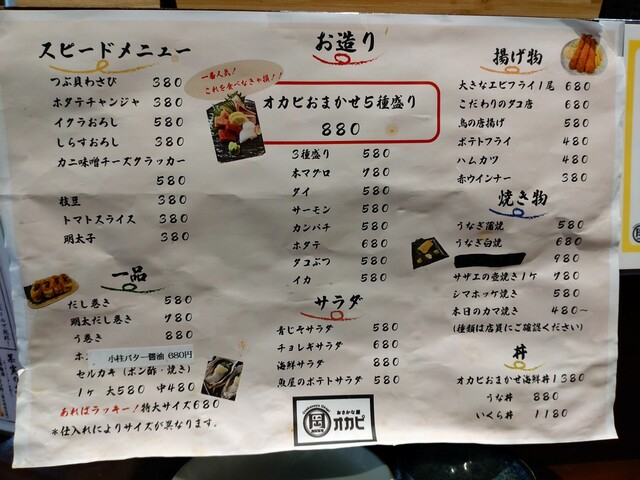 スピードメニュー
つぶ貝わさび 380
ホタテチャンジャ 380
イクラおろし 580
しらすおろし 380
カニ味噌チーズクラッカー
580
枝豆 380
トマトスライス 380
明太子 380
一品
だし巻き 580
明太だし巻き 780
う巻き 880
小柱バター醤油 680円
セルカキ(ポン酢・焼き)
1ヶ 大580 中480
あればラッキー!特大サイズ680
*仕入れによりサイズが異なります。
お造り
一番人気!
これを食べなきゃ損!!
オカピおまかせ5種盛り
880
3種盛り 580
本マグロ 780
タイ 580
サーモン 580
カンパチ 580
ホタテ 680
タコぶつ 580
イカ 580
サラダ
青じそサラダ 580
チョレギサラダ 680
海鮮サラダ 880
魚屋のポテトサラダ 580
おさかな屋
岡 オカピ
揚げ物
大きなエビフライ1尾 680
こだわりのタコ唐 680
鳥の唐揚げ 580
ポテトフライ 480
ハムカツ 480
赤ウインナー 380
焼き物
うなぎ蒲焼 580
うなぎ白焼 680
980
サザエの壺焼き1ケ 780
シマホッケ焼き 580
本日のカマ焼き 480~
(種類は店員にご確認ください)
丼
オカピおまかせ海鮮丼1380
うな丼 880
いくら丼 1180